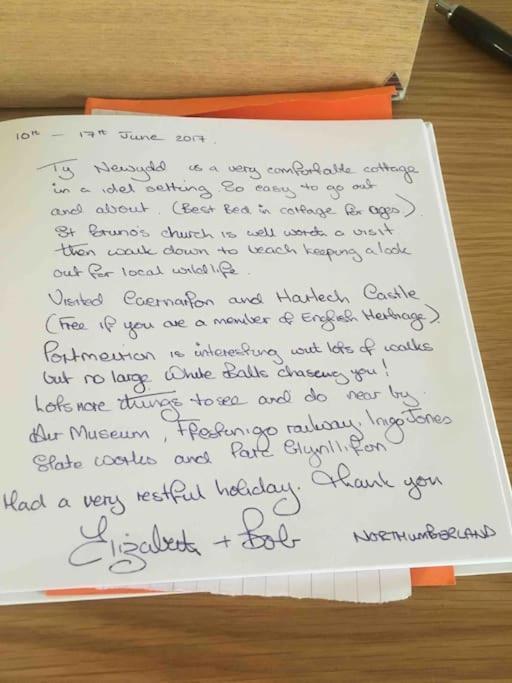 10th - 17th June 2017.
Ty Newydd is a very comfortable cottage
in a idel setting So easy to go out
and about. (Best Bed in cottage for ages).
St Bruno's church is well worth a visit
then walk down to beach keeping a look
out for local wildlife.
Visited Caernarfon and Harlech Castle
(Free if you are a member of English Heritage).
Portmeirion is interesting wit lots of walks
but no large White Balls chasing you!
Lots more things to see and do near by
Air Museum, Ffestinigo railway, Inigo Jones
Slate works and Parc Glynllifon
Had a very restful holiday. Thank you
Elizabeth + Bob
NORTHUMBERLAND